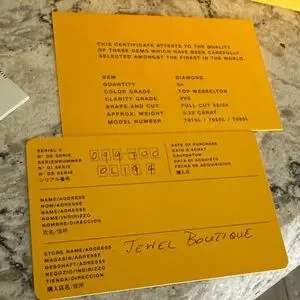 THIS CERTIFICATE ATTESTS TO THE QUALITY
OF THESE GEMS WHICH HAVE BEEN CAREFULLY
SELECTED AMONGST THE FINEST IN THE WORLD.
GEM DIAMOND
QUANTITY
COLOR GRADE TOP WESSELTON
CLARITY GRADE VVS
SHAPE AND CUT FULL CUT 32/24
APPROX. WEIGHT 0.22 CARAT
MODEL NUMBER
SERIAL #
N° DE SERIE
SERIENNUMMER
N° DI SERIE
N° DE SERIE
シリアル番号
DATE OF PURCHASE
DATE D'ACHAT
KAUFDATUM
DATA DI ACQUISTO
FECHA DE ADQUISICION
購入日
NAME/ADDRESS
NOM/ADRESSE
NAME/ADRESSE
NOME/INDIRIZZO
NOMBRE/DIRECCION
氏名/住所
STORE NAME/ADDRESS
MAGASIN/ADRESSE
GESCHAFT/ADRESSE
NEGOZIO/INDIRIZZO
TIENDA/DIRECCION
購入店名/住所
JEWEL BOUTIQUE